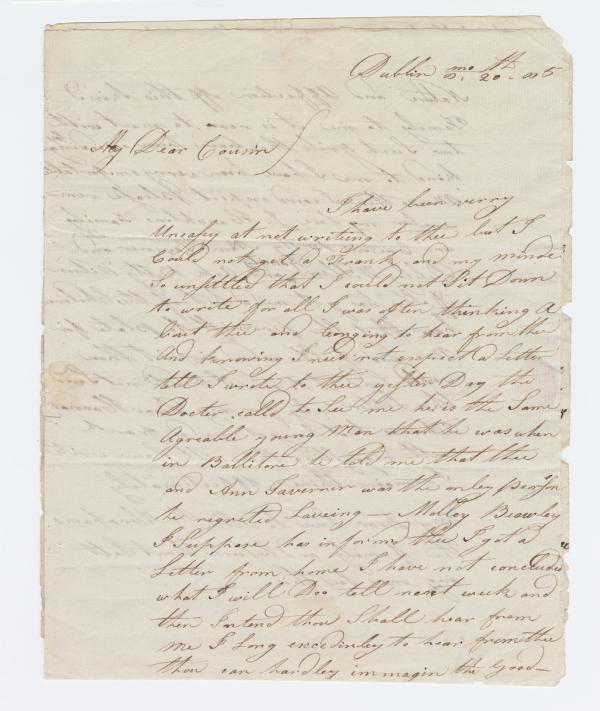 Dublin mo 20th
My Dear Cousin
I have been verry
Uneasy at not writeing to thee but I
Could not get a Frank and my minde
So unsettled that I could not Sit Down
to write for all I was often thinking A
bout thee and Longing to hear from the
And knowing I need not expect a Letter
tell I wrote to thee yester Day the
Docter calld to See me he is the Same
Agreable young Man that he was when
in Ballitore he told me that thee
and Ann Taverner was the onley person
he regreted Leaveing — Molley Bewley
I Suppose has informd thee I got a
Letter from home I have not concluded
what I will Doo tell next week and
then Intend thou Shall hear from
me I Long excedinley to hear from thee
thou can hardley immagin the Good —